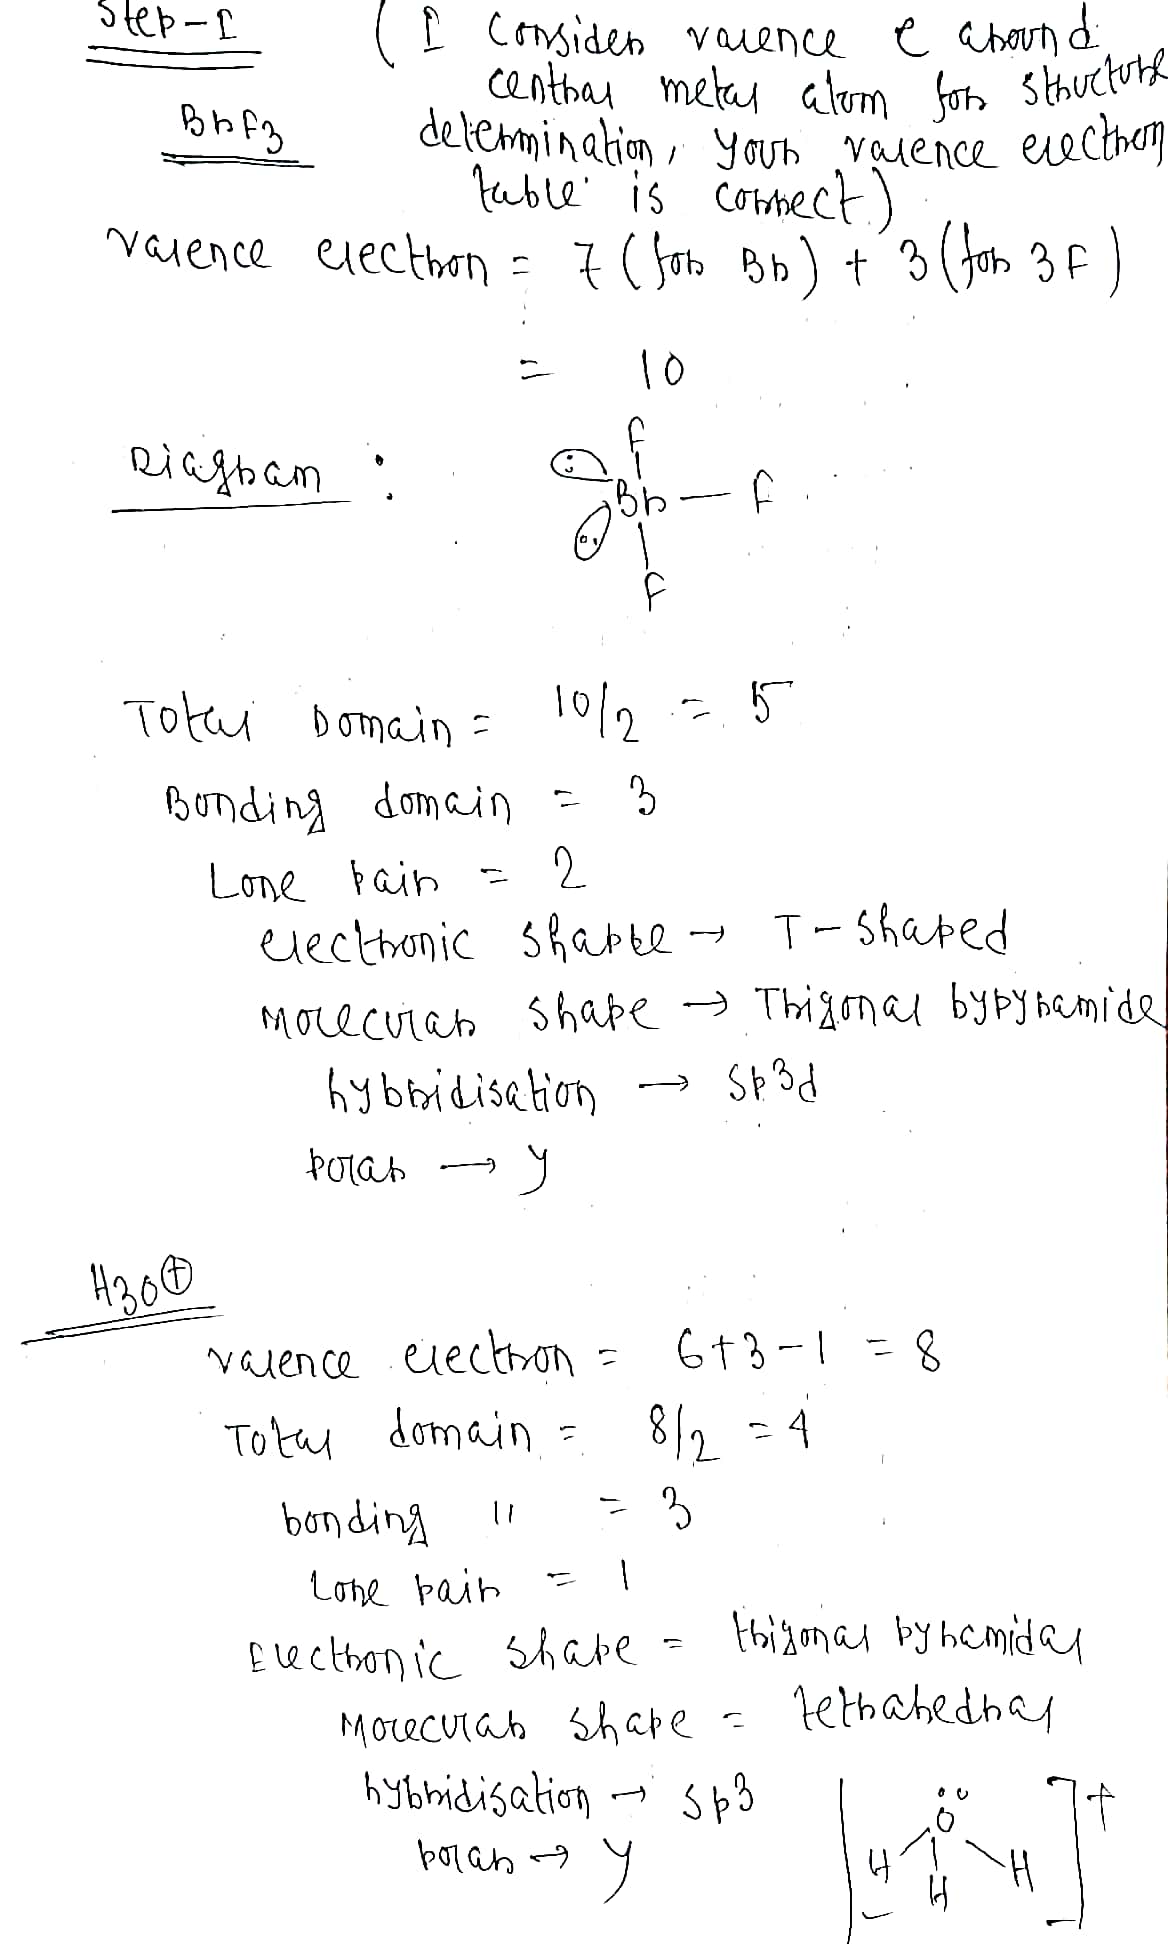 Step-I
(I Consider valence e around
central metal atom for structure
BrF3
determination, your valence electron
table is correct)
Valence electron = 7 (for Br) + 3 (for 3F)
= 10
Diagram :
F
Br — F
F
Total Domain = 10/2 = 5
Bonding domain = 3
Lone pair = 2
electronic shape → T-shaped
Molecular shape → Trigonal bypyramide
hybridisation → sp3d
polar → y
H3O⊕
valence electron = 6+3-1 = 8
Total domain = 8/2 = 4
bonding 11 = 3
Lone pair = 1
Electronic shape = trigonal pyramidal
Molecular shape = tetrahedral
hybridisation → sp3
polar → y
[O H H H]+